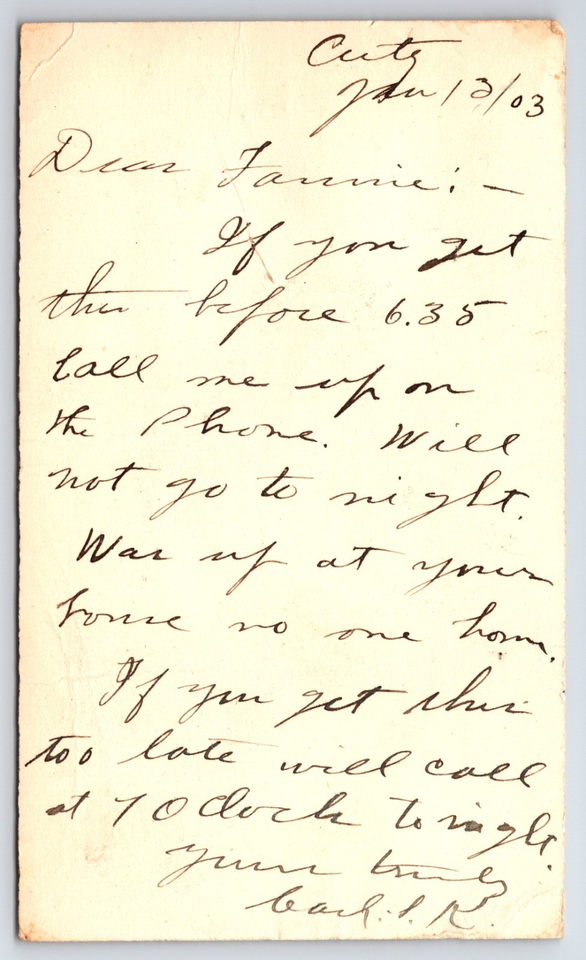 City
Jan 13/03
Dear Fannie:—
If you get
this before 6.35
Call me up on
the Phone. Will
not go to night.
Was up at your
house no one home.
If you get this
too late will call
at 7 O Clock to night.
yours truly
Carl. S. R.